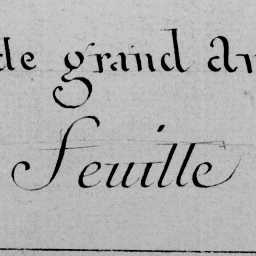 de grand an
Feuille